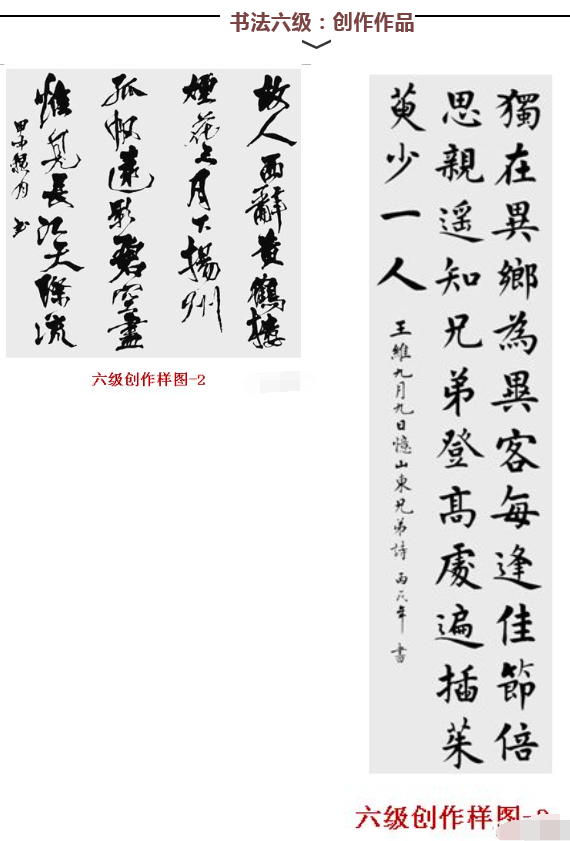 书法六级：创作作品
故人西辭黄鶴樓
煙花三月下揚州
孤帆遠影碧空盡
惟見長江天際流
書
六级创作样图-2
獨在異鄉為異客每逢佳節倍
思親遥知兄弟登髙處遍插茱
萸少一人
王維九月九日憶山東兄弟詩 丙年 書
六级创作样图-